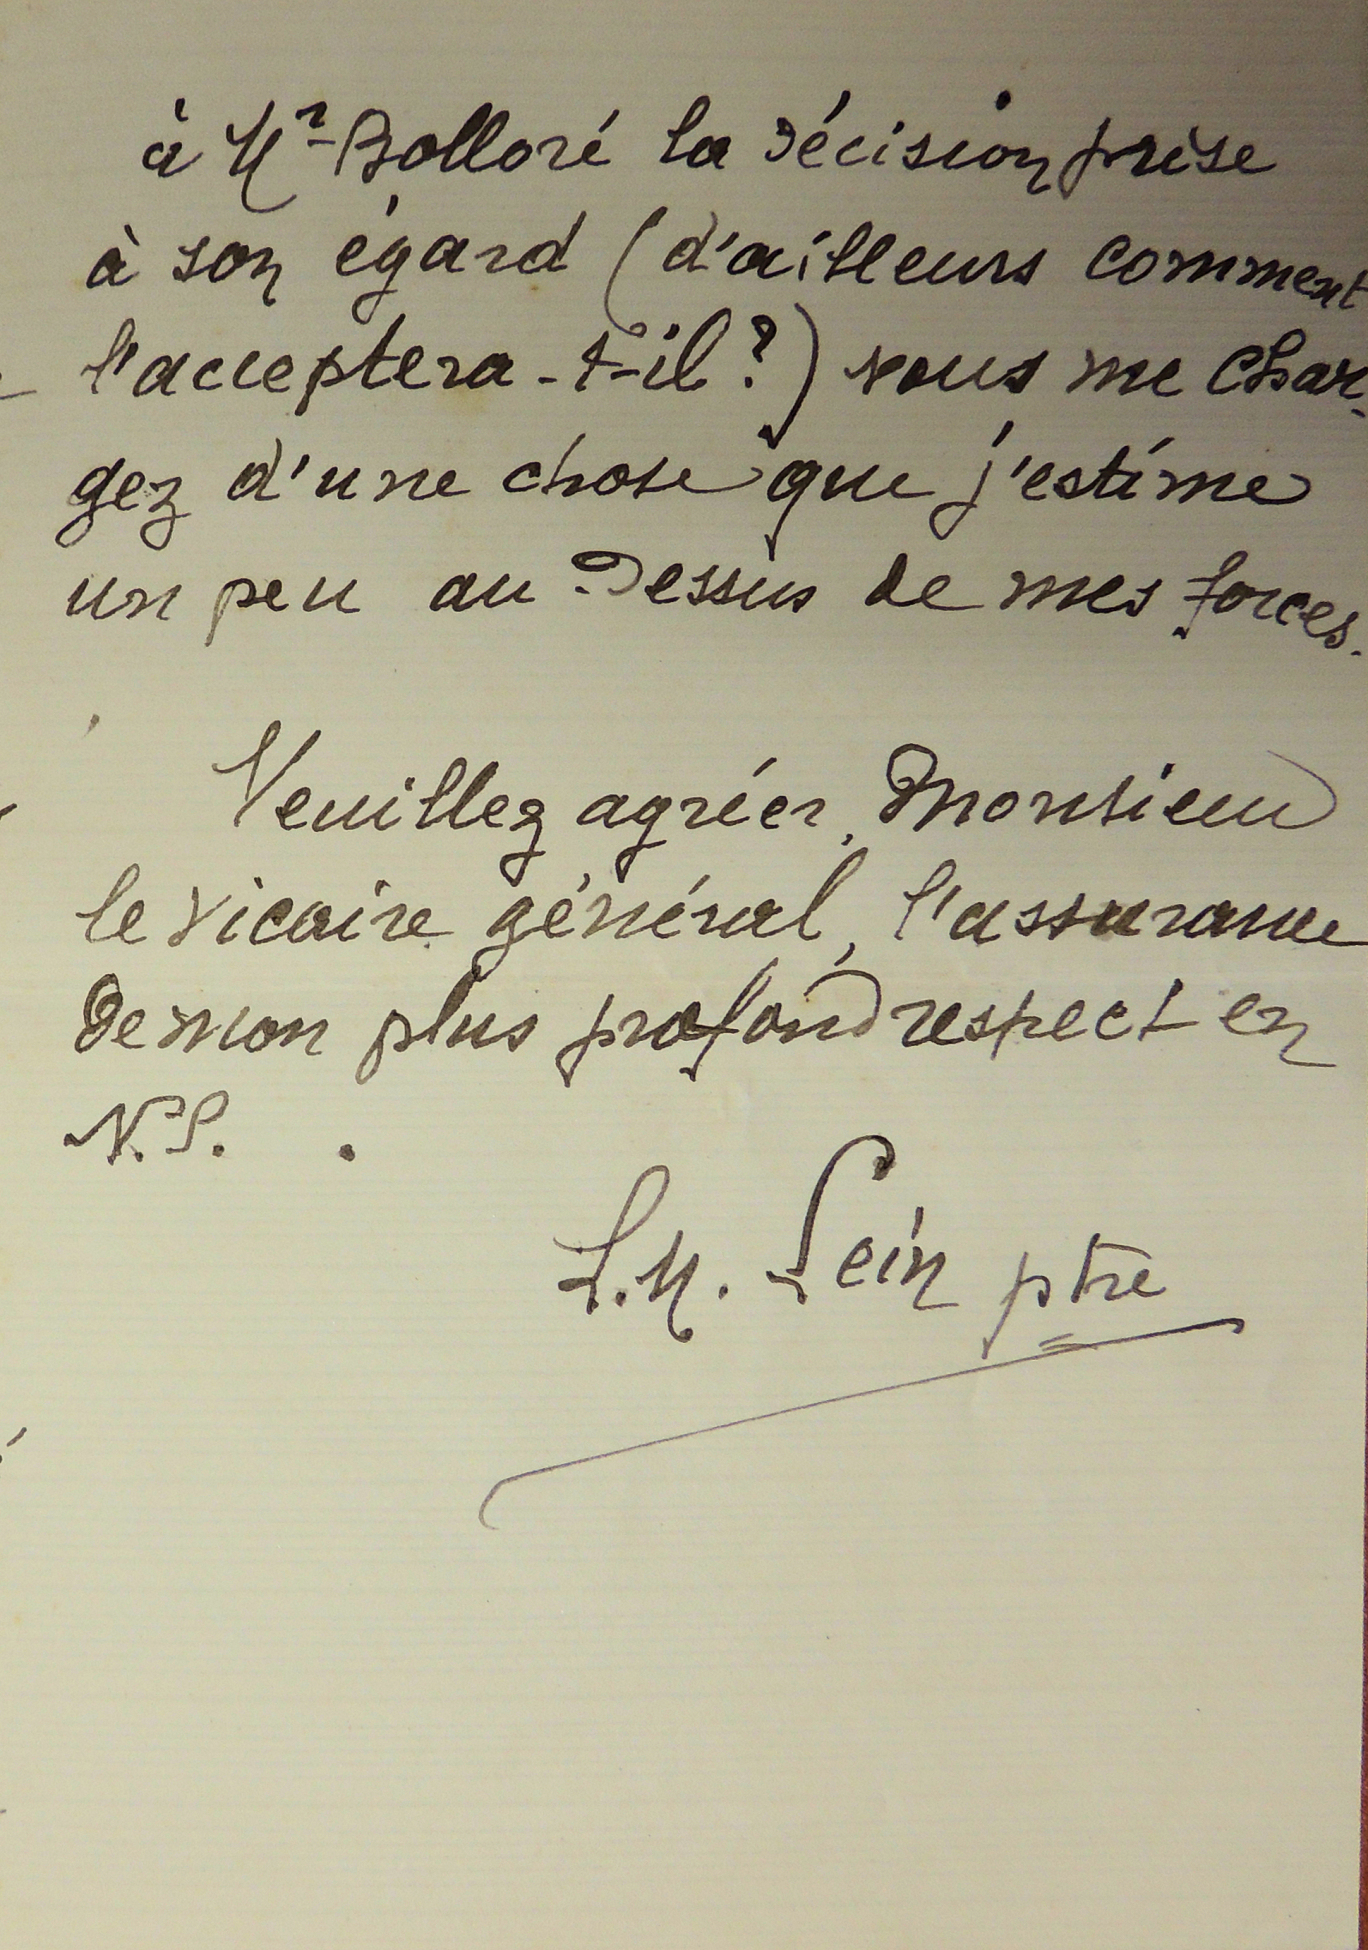 à Mr Bolloré la décision prise
à son égard (d'ailleurs comment
l'acceptera-t-il ?) vous me char-
gez d'une chose que j'estime
un peu au-dessus de mes forces.
Veuillez agréer, Monsieur
le vicaire général, l'assurance
de mon plus profond respect en
N.S.
ptre